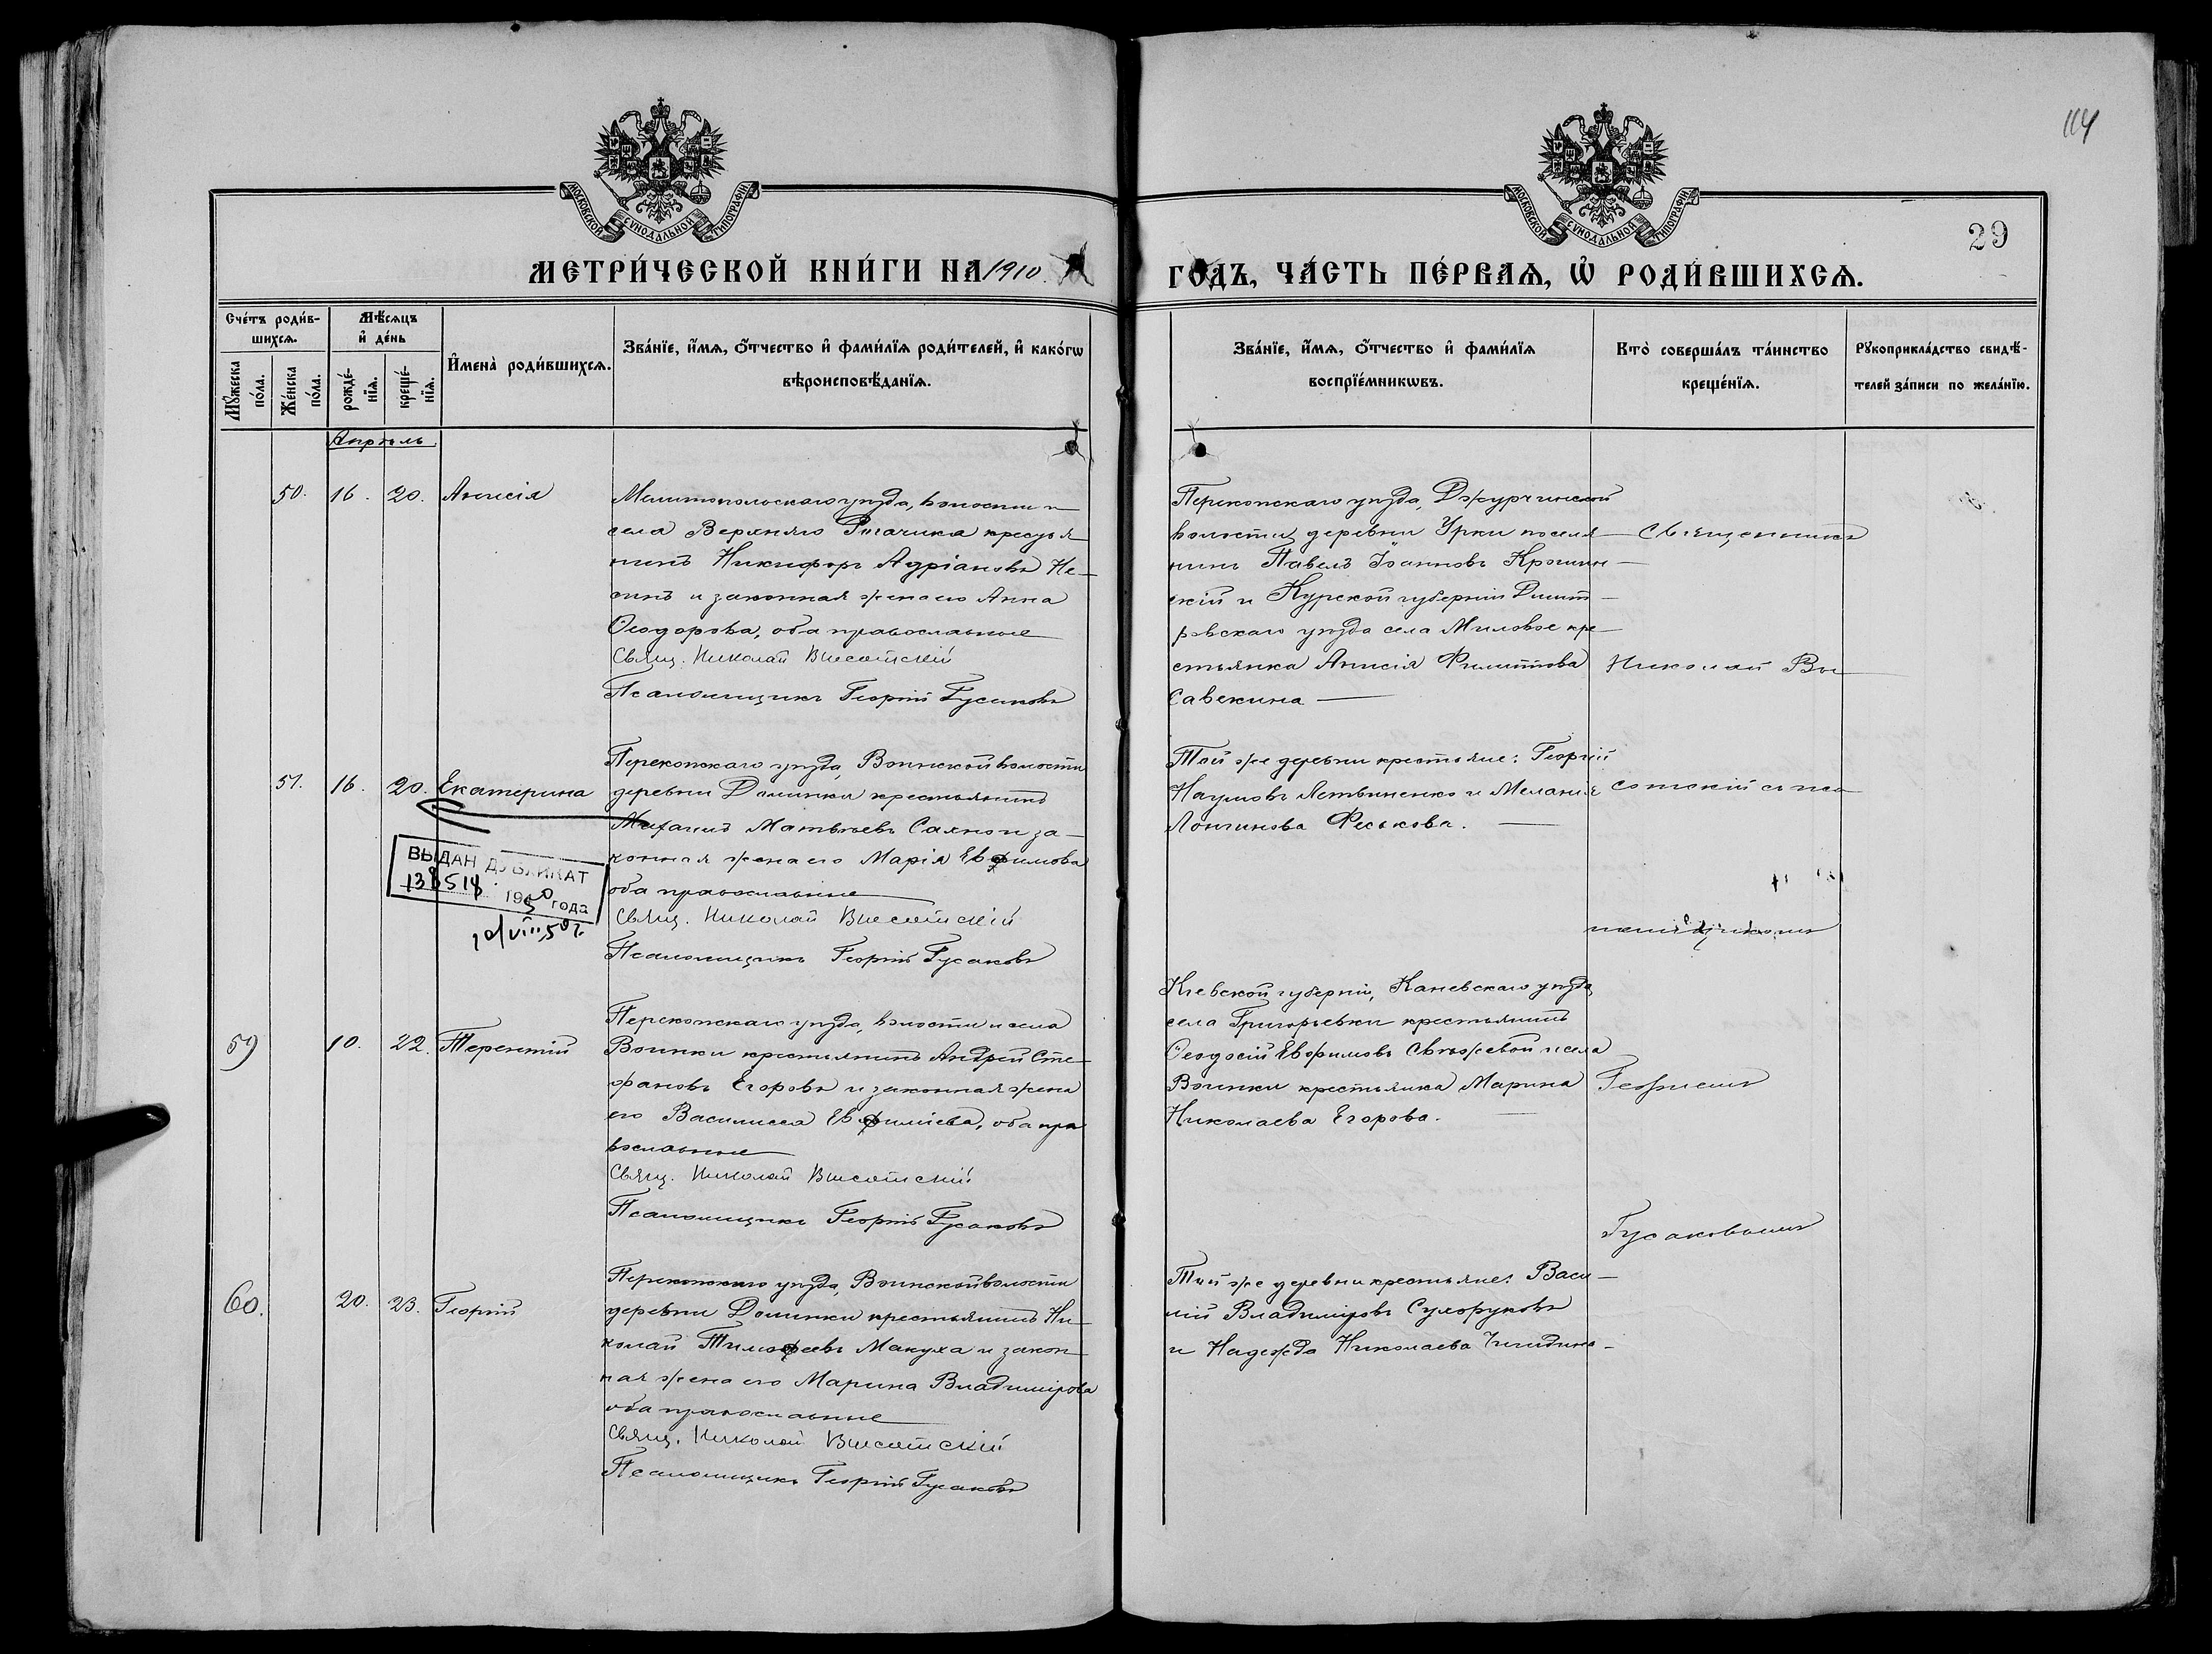 114
29
МОСКОВСКОЙ СѴНОДАЛЬНОЙ ТИПОГРАФІИ
МОСКОВСКОЙ СѴНОДАЛЬНОЙ ТИПОГРАФІИ
МЕТРИ́ЧЕСКОЙ КНИ́ГИ НА 1910
ГО́ДЪ, ЧА́СТЬ ПЕ́РВАѦ, Ѡ҆ РОДИ́ВШИХСѦ.
Сче́тъ роди́в-
шихсѧ.
Мꙋ́жеска
по́ла.
Же́нска
по́ла.
Мѣ́сѧцъ
и҆ де́нь
рожде́-
нїѧ.
креще́-
нїѧ.
И҆мена̀ роди́вшихсѧ.
Зва́нїе, и҆́мѧ, ѻ҆́тчество и҆ фами́лїѧ роди́телей, и҆ како́гѡ
вѣроисповѣ́данїѧ.
Зва́нїе, и҆́мѧ, ѻ҆́тчество и҆ фами́лїѧ
воспрїе́мникѡвъ.
Кто̀ соверша́лъ та́инство
креще́нїѧ.
Рꙋкоприкла́дство свидѣ́-
телей за́писи по жела́нїю.
Апрѣль
50. 16. 20. Анисія
Мелитопольскаго уѣзда, волости и
села Верхняго Рогачика крестья-
нинъ Никифоръ Адріановъ
и законная жена его Анна
Ѳеодорова, оба православные
Свящ. Николай Высотскій
Псаломщикъ Георгій Гусаковъ
Перекопскаго уѣзда, Джурчинской
волости деревни Урки поселя-
нинъ Павелъ Іоанновъ
и Курской губерніи Дмит-
ровскаго уѣзда села Миловое кре-
стьянка Анисія Филиппова
Савекина
Священникъ
Николай Вы-
51. 16. 20. Екатерина
Перекопскаго уѣзда, Воинской волости
деревни Долинки крестьянинъ
Михаилъ Матвѣевъ Сахно и за-
конная жена его Марія Евфимова
оба православные
Свящ. Николай Высотскій
Псаломщикъ Георгій Гусаковъ
ВЫДАН ДУБЛИКАТ
1950 года
Той же деревни крестьяне: Георгій
Наумовъ Литвиненко и Меланія
Лонгинова Феськова.
сотскій съ пса-
ломщикомъ
59 10. 22. Терентій
Перекопскаго уѣзда, волости и села
Воинки крестьянинъ Андрей Сте-
фановъ Егоровъ и законная жена
его Василисса Евфиміева, оба пра
вославные
Свящ. Николай Высотскій
Псаломщикъ Георгій Гусаковъ
Кіевской губерніи, Каневскаго уѣзда,
села Григорьевки крестьянинъ
Ѳеодосій Евфимовъ Свѣжевой и села
Воинки крестьянка Марина
Николаева Егорова.
Георгіемъ
Гусаковымъ
60. 20. 23. Георгій
Перекопскаго уѣзда, Воинской волости
деревни Долинки крестьянинъ Ни-
колай Тимофеевъ Макуха и закон-
ная жена его Марина Владимірова
оба православные
Свящ. Николай Высотскій
Псаломщикъ Георгій Гусаковъ
Той же деревни крестьяне: Васи-
лій Владиміровъ Сухоруковъ
и Надежда Николаева